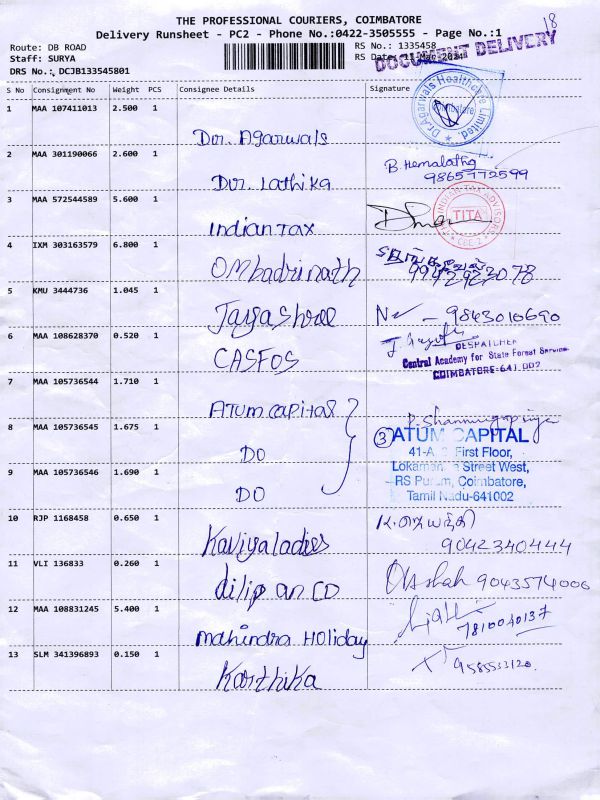 18
THE PROFESSIONAL COURIERS, COIMBATORE
Delivery Runsheet - PC2 - Phone No.:0422-3505555 - Page No.:1
Route: DB ROAD
RS No.: 1335458
Staff: SURYA
RS Date: 11-Mar-2024
DOCUMENT DELIVERY
DRS No.: DCJB133545801
S No Consignment No Weight PCS Consignee Details Signature
Dr.Agarwals Healthcare Limited. Coimbatore
1 MAA 107411013 2.500 1
Dr. Agarwals
2 MAA 301190066 2.600 1
B. Hemalatha
Dr. Lathika 9865772599
3 MAA 572544589 5.600 1
INDIAN TAX ADVISORS TITA CBE-2
Indian Tax
4 IXM 303163579 6.800 1
OM badrinath
5 KMU 3444736 1.045 1
Jayashree 9843010690
6 MAA 108628370 0.520 1
DESPATCHER
CASFOS Central Academy for State Forest Service
COIMBATORE-641 002
7 MAA 105736544 1.710 1
Atum capital
8 MAA 105736545 1.675 1
3 ATUM CAPITAL
DO 41-A, First Floor,
9 MAA 105736546 1.690 1
Street West,
RS Puram, Coimbatore,
DO Tamil Nadu-641002
10 RJP 1168458 0.650 1
Kaviyaladies 9042340444
11 VLI 136833 0.260 1
dilip an CD 9043574006
12 MAA 108831245 5.400 1
mahindra Holiday
13 SLM 341396893 0.150 1
Karthika 9585533120